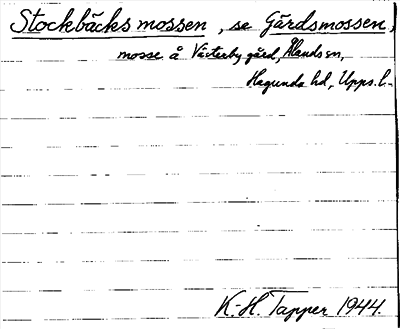 Stockbäcksmossen, se Gårdsmossen,
mosse å Västerby gård, Ålands sn,
Hagunda hd, Upps. l.
K.-H. Tapper 1944.